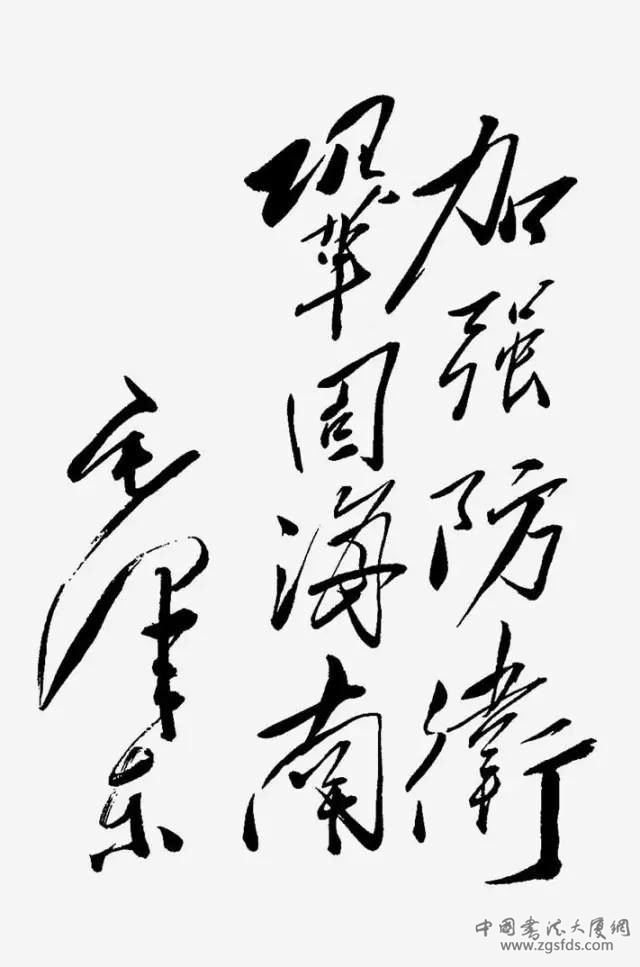 加强防衛
鞏固海南
毛澤东
中國書法大厦網
www.zgsfds.com